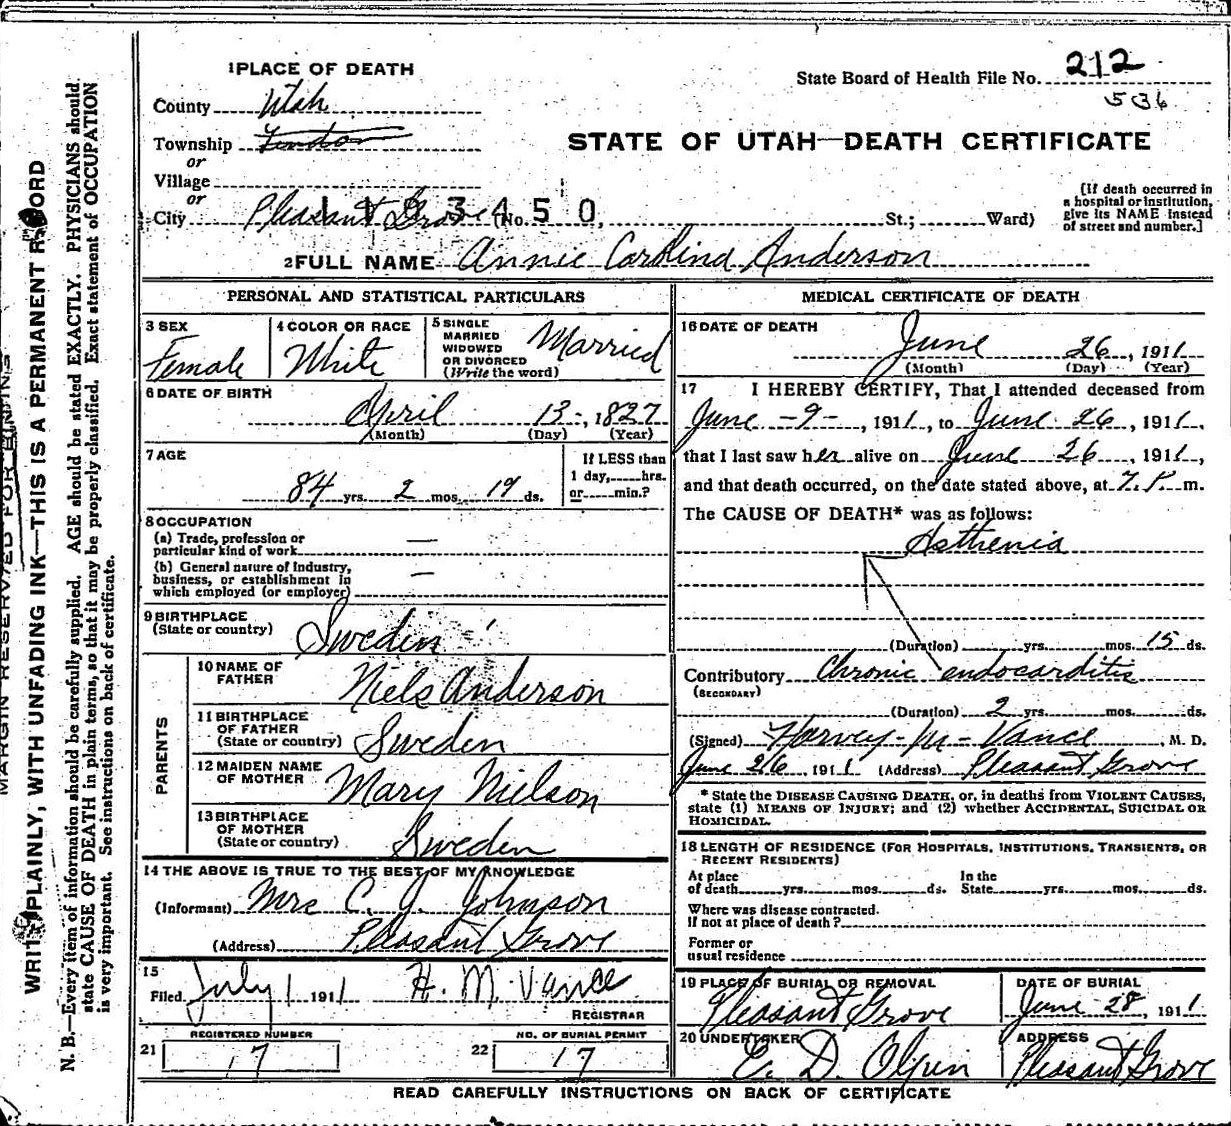 1 PLACE OF DEATH
State Board of Health File No. 212
536
County Utah
STATE OF UTAH—DEATH CERTIFICATE
Township
or
Village
or
City Pleasant Grove (No. St.; Ward)
1 1 0 3 4 5 0
[If death occurred in
a hospital or institution,
give its NAME instead
of street and number.]
2 FULL NAME Annie Carolina Anderson
PERSONAL AND STATISTICAL PARTICULARS
3 SEX
Female
4 COLOR OR RACE
White
5 SINGLE
MARRIED
WIDOWED
OR DIVORCED
(Write the word)
Married
6 DATE OF BIRTH
April 13-, 1827
(Month) (Day) (Year)
7 AGE
84 yrs. 2 mos. 19 ds.
If LESS than
1 day, hrs.
or min.?
8 OCCUPATION
(a) Trade, profession or
particular kind of work —
(b) General nature of Industry,
business, or establishment in
which employed (or employer) —
9 BIRTHPLACE
(State or country) Sweden
PARENTS
10 NAME OF
FATHER Niels Anderson
11 BIRTHPLACE
OF FATHER
(State or country) Sweden
12 MAIDEN NAME
OF MOTHER Mary Nielson
13 BIRTHPLACE
OF MOTHER
(State or country) Sweden
14 THE ABOVE IS TRUE TO THE BEST OF MY KNOWLEDGE
(Informant) Mrs C. J. Johnson
(Address) Pleasant Grove
15
Filed July 1 1911 H. M. Vance
REGISTRAR
REGISTERED NUMBER
21 17
NO. OF BURIAL PERMIT
22 17
MEDICAL CERTIFICATE OF DEATH
16 DATE OF DEATH
June 26, 1911
(Month) (Day) (Year)
17 I HEREBY CERTIFY, That I attended deceased from
June -9-, 1911, to June 26, 1911,
that I last saw her alive on June 26, 1911,
and that death occurred, on the date stated above, at 7. P. m.
The CAUSE OF DEATH* was as follows:
Asthenia
(Duration) yrs. mos. 15 ds.
Contributory Chronic endocarditis
(SECONDARY)
(Duration) 2 yrs. mos. ds.
(Signed) Harvey-M-Vance, M. D.
June 26, 1911 (Address) Pleasant Grove
* State the DISEASE CAUSING DEATH, or, in deaths from VIOLENT CAUSES,
state (1) MEANS OF INJURY; and (2) whether ACCIDENTAL, SUICIDAL OR
HOMICIDAL.
18 LENGTH OF RESIDENCE (FOR HOSPITALS, INSTITUTIONS, TRANSIENTS, OR
RECENT RESIDENTS)
At place
of death yrs. mos. ds.
In the
State yrs. mos. ds.
Where was disease contracted,
if not at place of death?
Former or
usual residence
19 PLACE OF BURIAL OR REMOVAL
Pleasant Grove
DATE OF BURIAL
June 28, 1911
20 UNDERTAKER
E. D. Olpin
ADDRESS
Pleasant Grove
READ CAREFULLY INSTRUCTIONS ON BACK OF CERTIFICATE
MARGIN RESERVED FOR BINDING
WRITE PLAINLY, WITH UNFADING INK—THIS IS A PERMANENT RECORD
N. B.—Every item of information should be carefully supplied. AGE should be stated EXACTLY. PHYSICIANS should
state CAUSE OF DEATH in plain terms, so that it may be properly classified. Exact statement of OCCUPATION
is very important. See instructions on back of certificate.